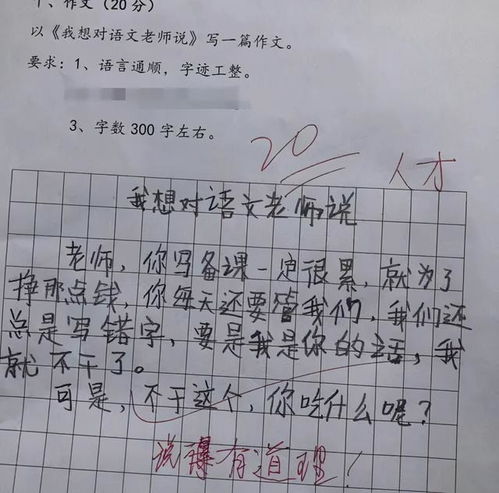 十、作文（20分）
以《我想对语文老师说》写一篇作文。
要求：1、语言通顺，字迹工整。
3、字数300字左右。
20
人才
我想对语文老师说
老师，你写备课一定很累，就为了
挣那点钱，你每天还要管我们，我们还
总是写错字，要是我是你的话，我
就不干了。
可是，不干这个，你吃什么呢？
说得有道理！